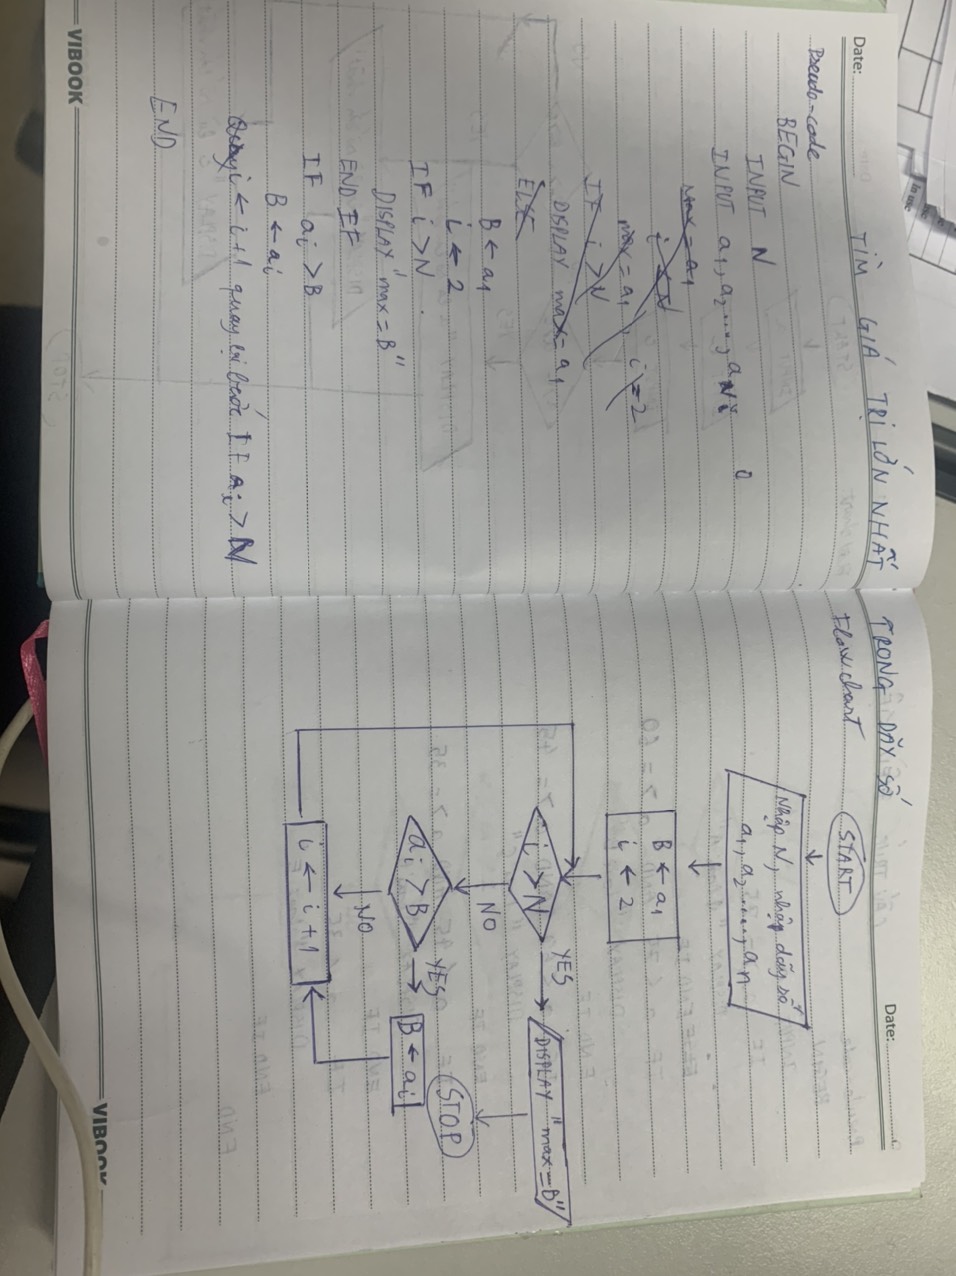 in use
Date:
TÌM GIÁ TRỊ LỚN NHẤT TRONG DÃY SỐ
Pseudo-code
BEGIN
INPUT N
INPUT a1, a2 ...., aN
max = a1
i ← N
max = a1, i = 2
IF i > N
DISPLAY max = a1
ELSE
B ← a1
i ← 2
IF i > N
DISPLAY "max = B"
END IF
IF ai > B
B ← ai
Quay i ← i + 1 quay lại bước IF ai > N
END
VIBOOK
Date:
Flowchart
START
Nhập N, nhập dãy số
a1, a2 ......, an
B ← a1
i ← 2
i > N
YES
DISPLAY "max = B"
NO
STOP
ai > B
YES
B ← ai
NO
i ← i + 1
VIBOOK